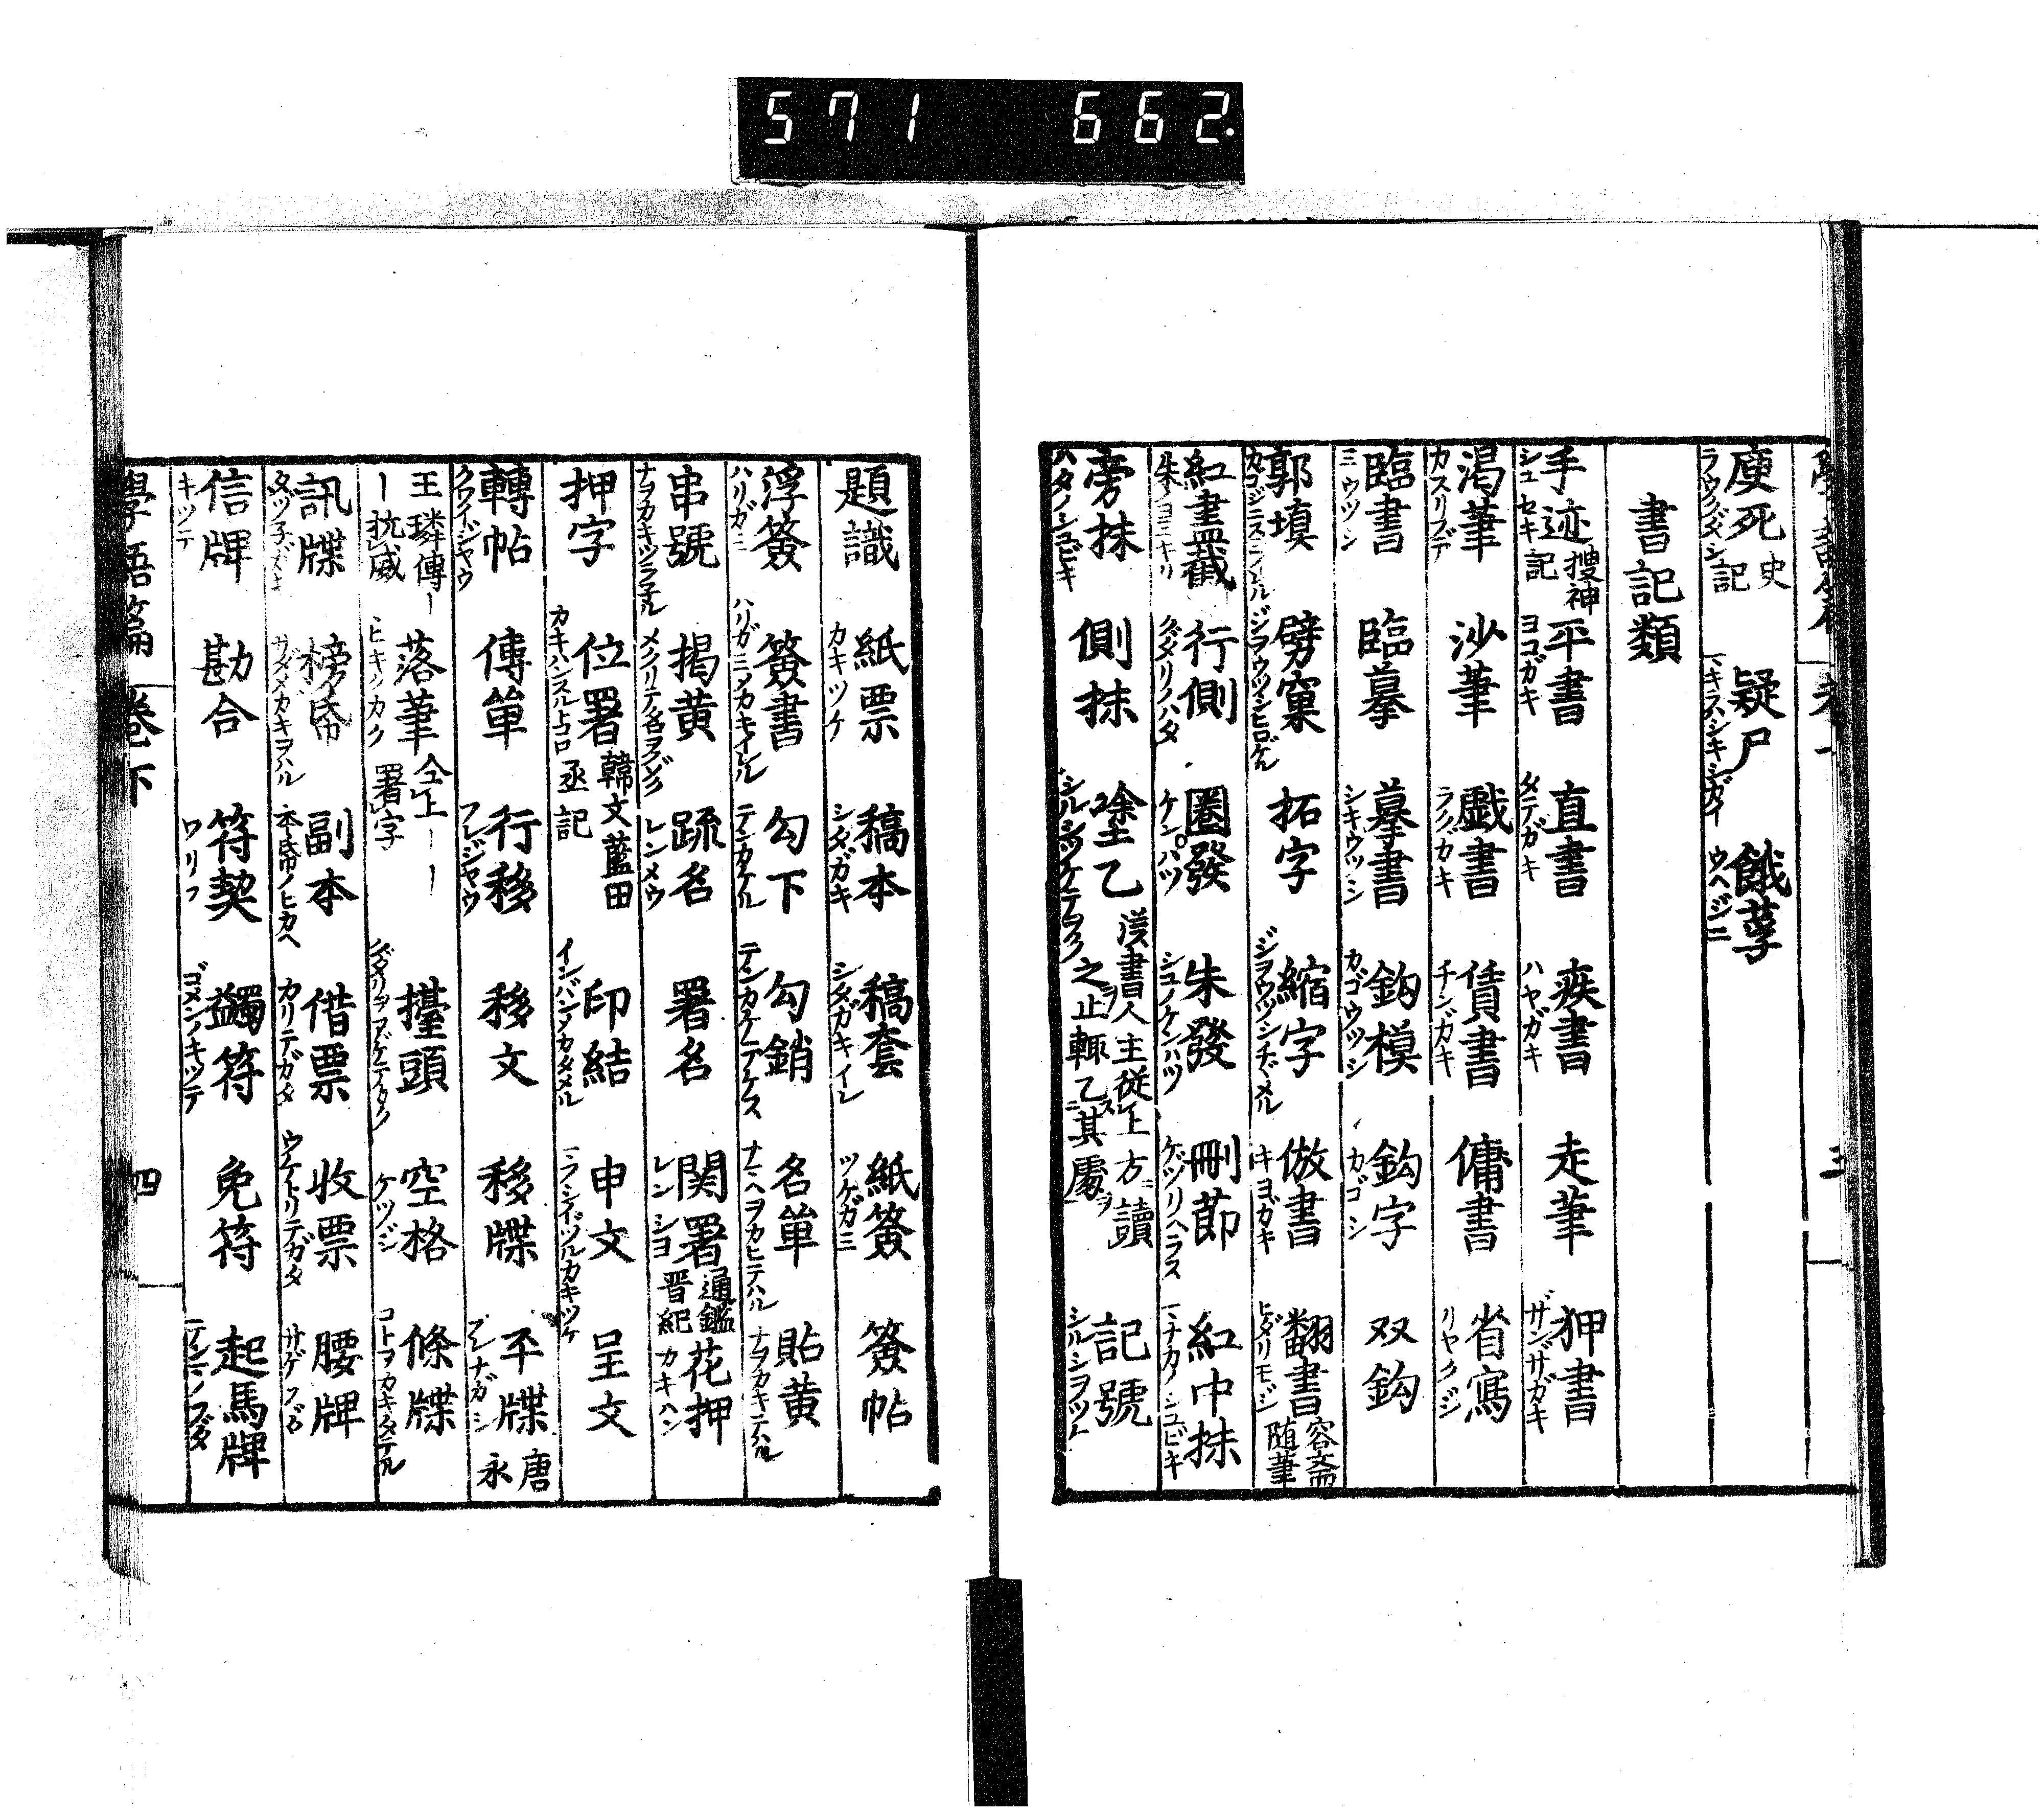 571 662.
庾死 ラウクズシ 史記 疑尸 餓莩 ウヘジニ
書記類
手迹 シュセキ 搜神記 平書 ヨコガキ 直書 タテガキ 疾書 ハヤガキ 走筆 狎書 ザンザガキ
渇筆 カスリフデ 沙筆 戯書 ラクガキ 賃書 チンガキ 傭書 省寫 リヤクジ
臨書 ミウツシ 臨摹 摹書 シキウツシ 鈎模 カゴウツシ 鈎字 カゴシ 双鈎
郭塡 劈窠 ジヲウツシヒロゲル 拓字 縮字 ジヲウツシチヾメル 倣書 キヨガキ 翻書 ヒダリモジ 容斎随筆
紅畫截 行側 クダリノハタ 圏發 ケンパツ 朱發 シユノケンハツ 刪節 ケヅリヘラス 紅中抹 マナカノシユビキ
旁抹 ハタノシユビキ 側抹 塗乙 シルシツケテヲク 漢書人主從上方讀之止輙乙其處 記號 シルシヲツケ
題識 紙票 カキツケ 稿本 シタガキ 稿套 シタガキイレ 紙簽 ツケガミ 簽帖
浮簽 ハリガミ 簽書 ハリガミヲカキイレル 勾下 テンカケル 勾銷 テンカケテケス 名単 ナマヘヲカヒテハル 貼黄 ナヲカキテハル
串號 ナヲカキツラヌル 揭黄 メクリテ名ヲノゾク 疏名 レンメウ 署名 関署 レンシヨ 通鑑晋紀 花押 カキハン
押字 位署 カキハンスル占口 韓文藍田丞記 印結 インバンヲカタメル 申文 呈文
轉帖 クワイジヤウ 傳単 行移 フレジヤウ 移文 移牒 平牒 唐永
王璘傳ー ー抗威 落筆 ヒキノカク 仝上ーー署字 擡頭 クダリヲアゲテカク 空格 ケツジ 條牒 コトヲカキタテル
訊牒 榜帋 サダメカキヲハル 副本 本帋ノヒカヘ 借票 カリテガタ 收票 ウケトリテガタ 腰牌 サゲフダ
信牌 キツテ 勘合 符契 ワリフ 蠲符 ゴメンノキツテ 免符 起馬牌 テンマノフダ
學語篇 卷下 四